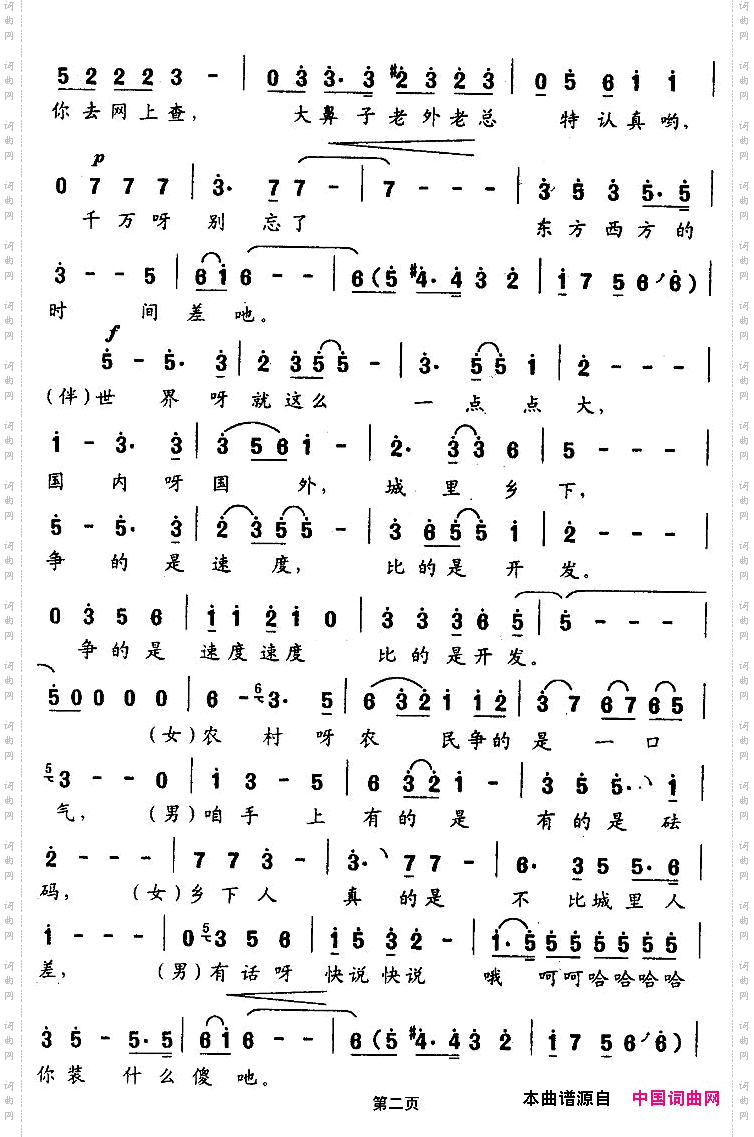 5 2 2 2 2 3 - | 0 3 3· 3 #2 3 2 3 | 0 5 6 1 1 |
你去网上查， 大鼻子老外老总 特认真哟，
p
0 7 7 7 | 3· 7 7 - | 7 - - - | 3 5 3 5· 5 |
千万呀别忘了 东方西方的
3 - - 5 | 6 1 6 - - | 6 (5 #4· 4 3 2 | 1 7 5 6 6) |
时间差吔。
f
5 - 5· 3 | 2 3 5 5 - | 3· 5 5 1 | 2 - - - |
(伴)世界呀就这么 一点点大，
1 - 3· 3 | 3 5 6 1 - | 2· 3 3 6 | 5 - - - |
国内呀国外， 城里乡下，
5 - 5· 3 | 2 3 5 5 - | 3 6 5 5 1 | 2 - - - |
争的是速度， 比的是开发。
0 3 5 6 | 1 1 2 1 0 | 3 3 3 6 5 | 5 - - - |
争的是速度速度 比的是开发。
5 0 0 0 0 0 | 6 - 6 3· 5 | 6 3 2 1 1 2 | 3 7 6 7 6 5 |
(女)农村呀农民争的是一口
5 3 - - 0 | 1 3 - 5 | 6 3 2 1 - | 3 5 5· 1 |
气， (男)咱手上有的是 有的是砝
2 - - - | 7 7 3 - | 3· 7 7 - | 6· 3 5 5· 6 |
码， (女)乡下人真的是 不比城里人
1 - - - | 0 5 3 5 6 | 1 5 3 2 - | 1· 5 5 5 5 5 5 5 |
差， (男)有话呀快说快说 哦呵呵哈哈哈哈
3 5 - 5· 5 | 6 1 6 - - | 6 (5 #4· 4 3 2 | 1 7 5 6 6) |
你装什么傻吔。
第二页
本曲谱源自 中国词曲网
词曲网